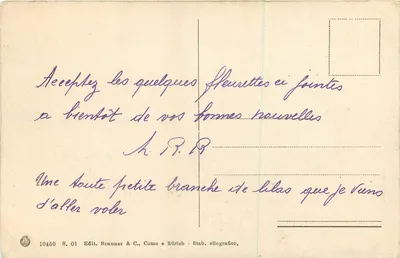 Acceptez les quelques fleurettes ci jointes
a bientôt de vos bonnes nouvelles
h. R. R
Une toute petite branche de lilas que je viens
d'aller voler
10450 S. 01 Edit. Brunner & C., Como e Zürich - Stab. eliografico.